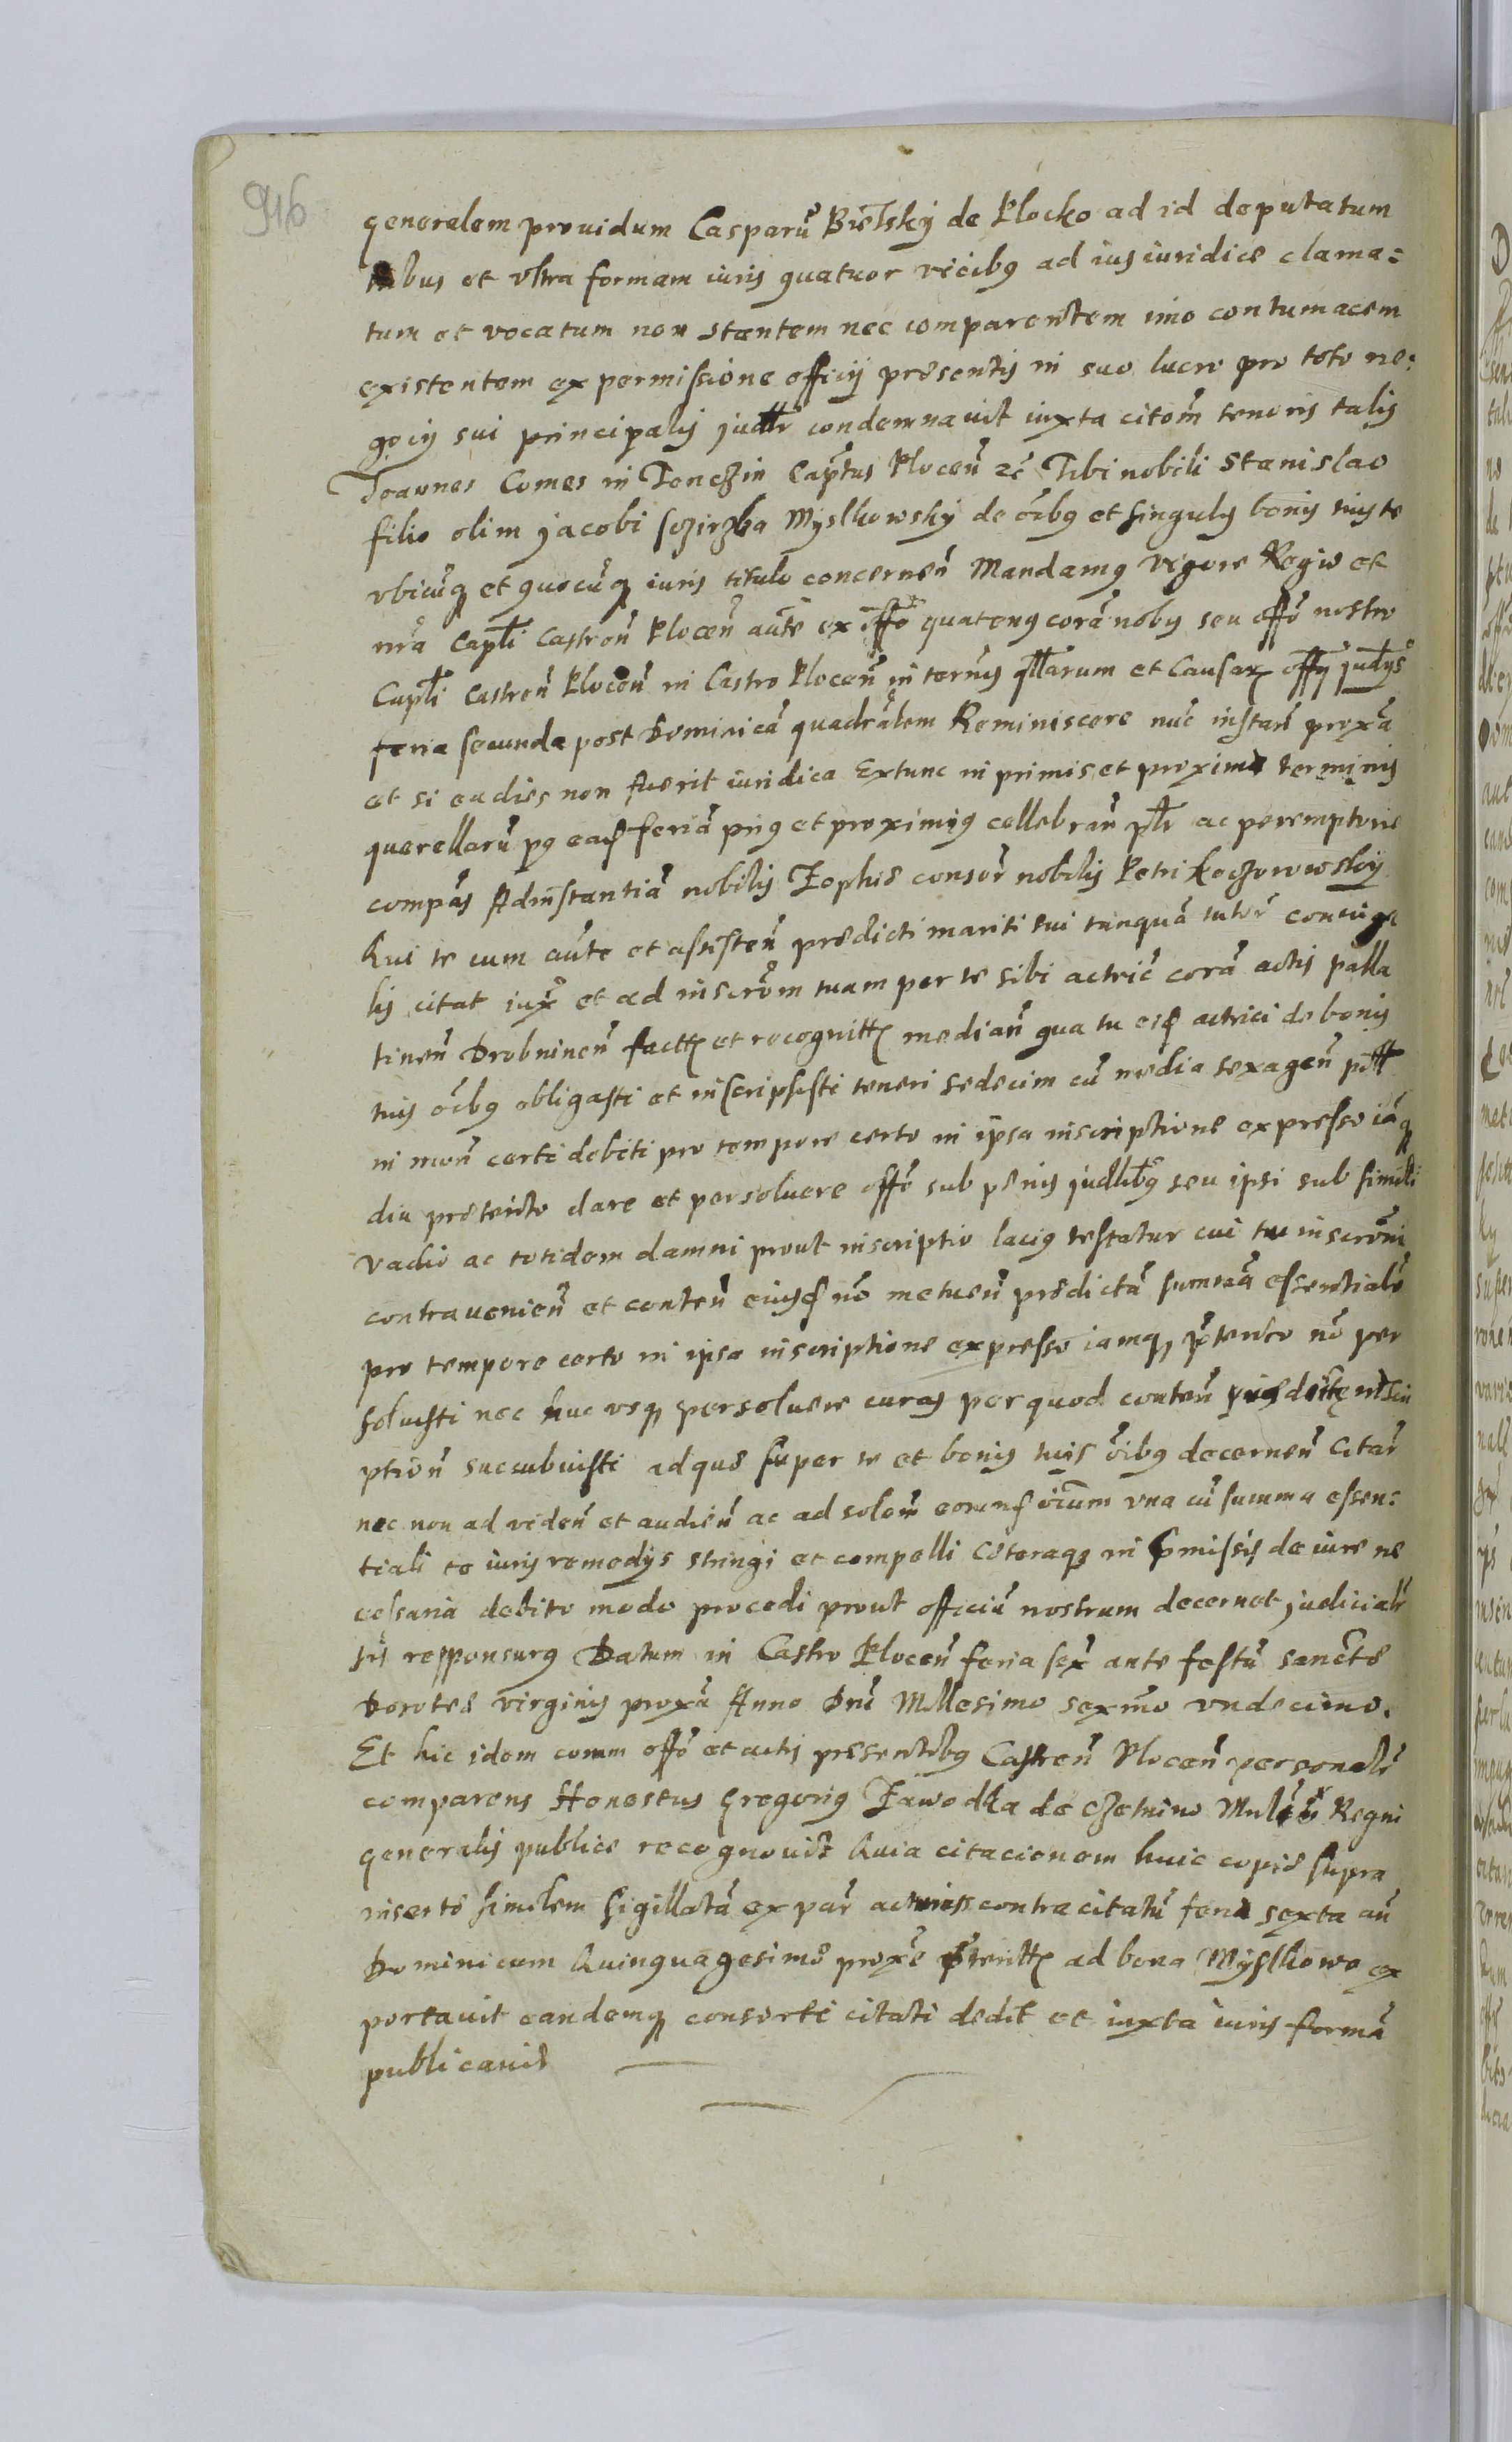 916
generalem prouidum Casparū Bielsky de Plocko ad id deputatum
tribus et vltra formam iuris quatuor vicibꝰ ad ius iuridice clama:
tum et vocatum non stantem nec comparentem imo contumacem
existentem ex permissione officij presentis in suo lucro pro toto ne:
gocij sui principalis judtr condemnauit iuxta citom̄ tenoris talis
Joannes Comes in Tenczin Captus Plocen̄ zc̄ Tibi nobili Stanislao
filio olim jacobi sczirzba Myslkowsky de oībꝰ et singulis bonis tuis te
vbicūqꝫ et quocūqꝫ iuris titulo concernen̄ Mandamꝰ vigore Regio et
nr̄a Capłi Castren̄ Plocen̄ aūte ex offō quatenꝰ corā nobis seu offō nostro
Capłi Castren̄ Plocen̄ in Castro Plocen̄ in ternis qłłarum et Causaꝝ offij judys
feria secunda post Dominicā quadrālem Reminiscere nūc instan̄ proxā
et si ea dies non fuerit iuridica Extunc in primis et proximis terminis
querellarū pꝰ eaꝭ feriā prius et proximiꝰ cellebran̄ płr ac peremptorie
compās Adinstantiā nobilis Zophie consor̄ nobilis Petri koczorowsky
Qui te cum aūte et assisten̄ predicti mariti sui tanquā tutor̄ coniuga
lis citat iux̄ et ad inscrōm tuam per te sibi actric̄ corā actis palla
tinen̄ Drobninen̄ factꝫ et recognitꝫ median̄ qua tu eiꝭ actrici de bonis
tuis oībꝰ obligasti et inscripsisti teneri sedecim cū media sexagen̄ płł
in mon̄ certi debiti pro tempore certo in ipsa inscriptione expresso iāqꝫ
diu preterito dare et persoluere offō sub penis judłibꝰ seu ipsi sub simili
vadio ac totidem damni prout inscriptio laciꝰ testatur cui tu inscrōni
contrauenien̄ et conten̄ eiusꝭ nō metuen̄ predictā summā essentialē
pro tempore certo in ipsa inscriptione expresso iamqꝫ preterito nō per
soluisti nec huc vsqꝫ persoluere curas per quod conten̄ inscri
ption̄ succubuisti ad que super te et bonis tuis oībꝰ decernen̄ Citar̄
nec non ad viden̄ et audien̄ ac ad soluen̄ eorunꝭ oīum vna cū summa essen:
tiali te iuris remedys stringi et compelli Ceteraqꝫ in pmissis de iure ne
cessaria debito modo procedi prout officiū nostrum decernet judicialr̄
sis responsurꝰ Datum in Castro Plocen̄ feria sex̄ ante festū sancte
Dorotee virginis proxā Anno Dnī Millesimo sexmo vndecimo.
Et hic idem coram offō et actis presentibꝰ Castren̄ Plocen̄ personalr̄
comparens Honestus Gregoriꝰ Zawodka de Czetnino Regni
generalis publice recognouit Quia citacionem huic copie supra
inserte similem sigillatā ex par̄ contra citatū feria sexta an̄
Dominicam Quinquagesime proxē pteritꝫ ad bona Myslkowo ex
portauit eandemqꝫ consorti citati dedit et iuxta iuris formā
publicauit